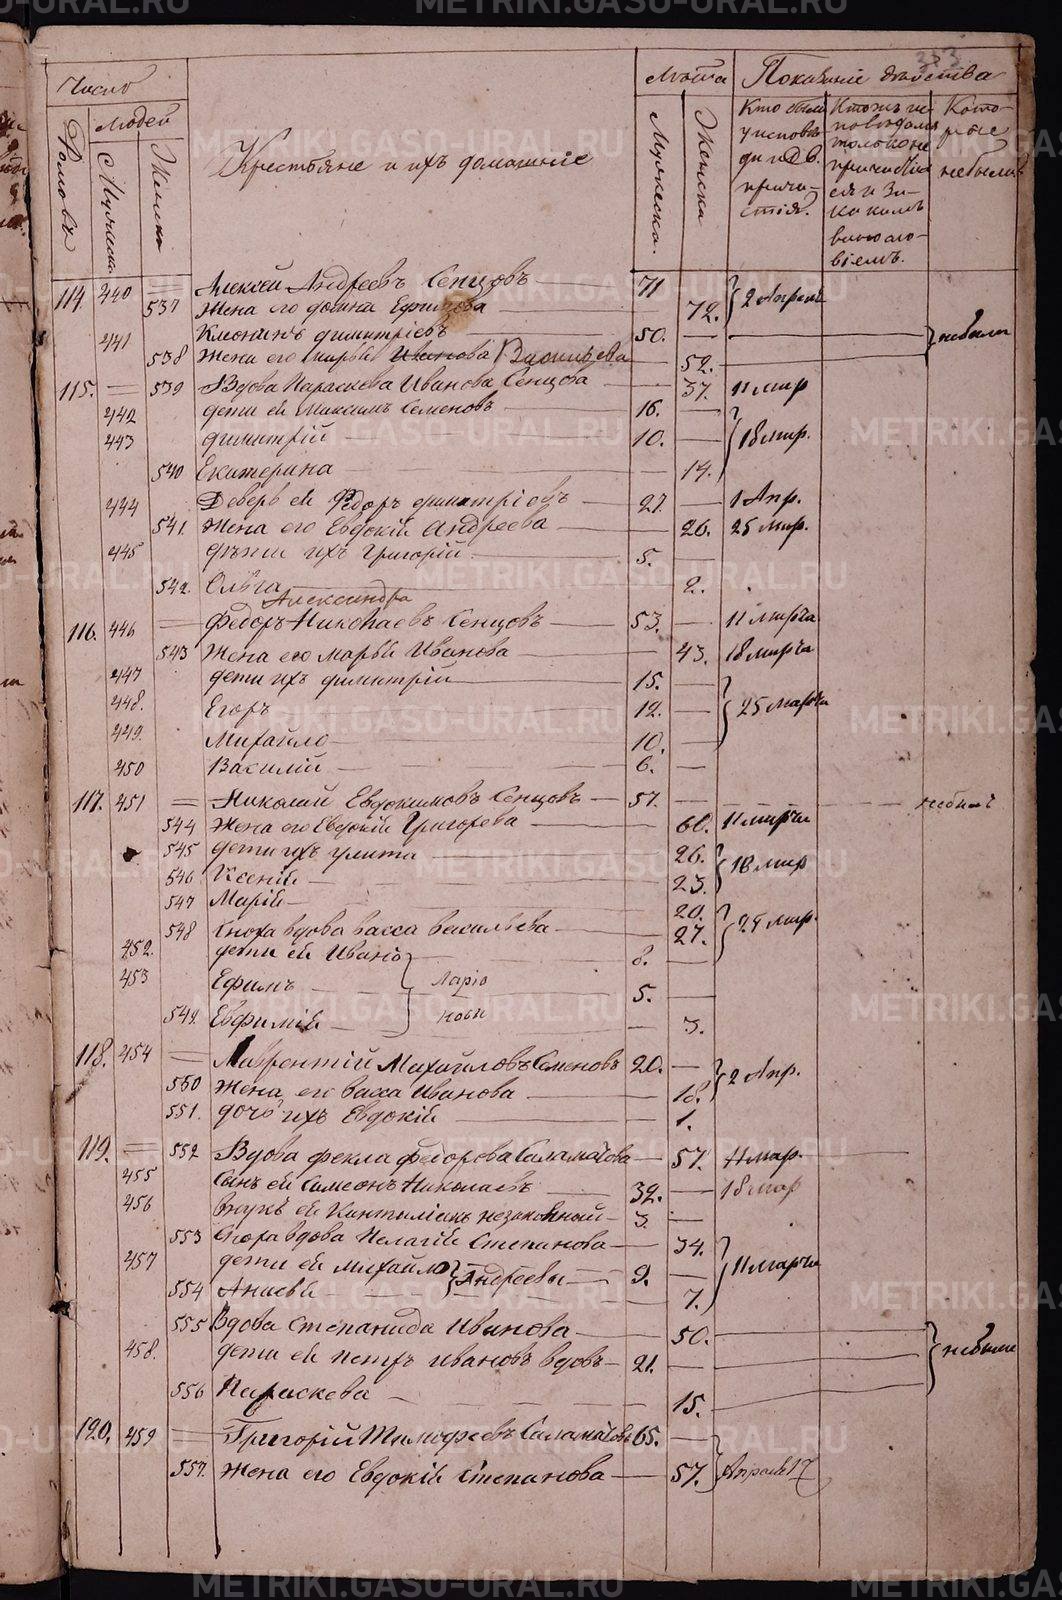 Число Людей Лѣта Показаніе дѣйства
Домовъ Мужеска Женска Крестьяне и ихъ домашніе Мужеска. Женска
Кто были у исповѣди и Св. причастія.
Кто жъ исповѣдались токмо не причастились и за какимъ виною
Которые не были
114. 440 Алексей Андреевъ Сенцовъ 71 2 Апреля
537 Жена его Ефимова 72.
441 димитріевъ 50.
538 Жена его Марья Иванова Васильева 52. небыли
115. 539 Вдова Параскева Иванова Сенцова 37. 11 мар
442 дети ей Максимъ Семеновъ 16.
443 димитрій 10. 18 мар.
540 Екатерина 14.
444 Деверь ей Федоръ димитріевъ 27. 1 Апр.
541. Жена его Евдокія Андреева 26. 25 мар.
445 дѣти ихъ Григорій 5.
542. Ольга 2.
Александра
116. 446 Федоръ Николаевъ Сенцовъ 53. 11 марта
543 Жена его Марья Иванова 43. 18 марта
447 дети ихъ димитрій 15.
448. Егоръ 12. 25 марта
449. Михайло 10.
450 Василій 6.
117. 451 Николай Евдокимовъ Сенцовъ 57. небылъ
544 Жена его Евдокія Григорева 60. 11 марта
545 дети ихъ улита 26.
546 Ксенія 23. 18 мар
547 Марія 20.
548 Сноха вдова Васса Васильева 27. 25 мар.
452. дети ей Иванъ 8.
453 Ефимъ Ларіо 5.
549. Евфимія новы 3.
118. 454 Лаврентій Михайловъ Семеновъ 20.
550 Жена его Васса Иванова 18. 2 Апр.
551. дочь ихъ Евдокія 1.
119. 552 Вдова Фекла Федорова Саламатова 57. 11 мар.
455 Сынъ ей Симеонъ Николаевъ 32. 18 мар
456 Внукъ ей незаконный 3.
553 Сноха вдова Пелагія Степанова 34.
457 дети ей Михайло Андреевы 9. 11 марта
554 7.
555 Вдова Степанида Иванова 50.
458. дети ей Петръ Ивановъ вдовъ 21. небыли
556 Параскева 15.
120. 459 Григорій Тимофеевъ Саламатовъ 65.
557. Жена его Евдокія Степанова 57. Апреля 17
METRIKI.GASO-URAL.RU